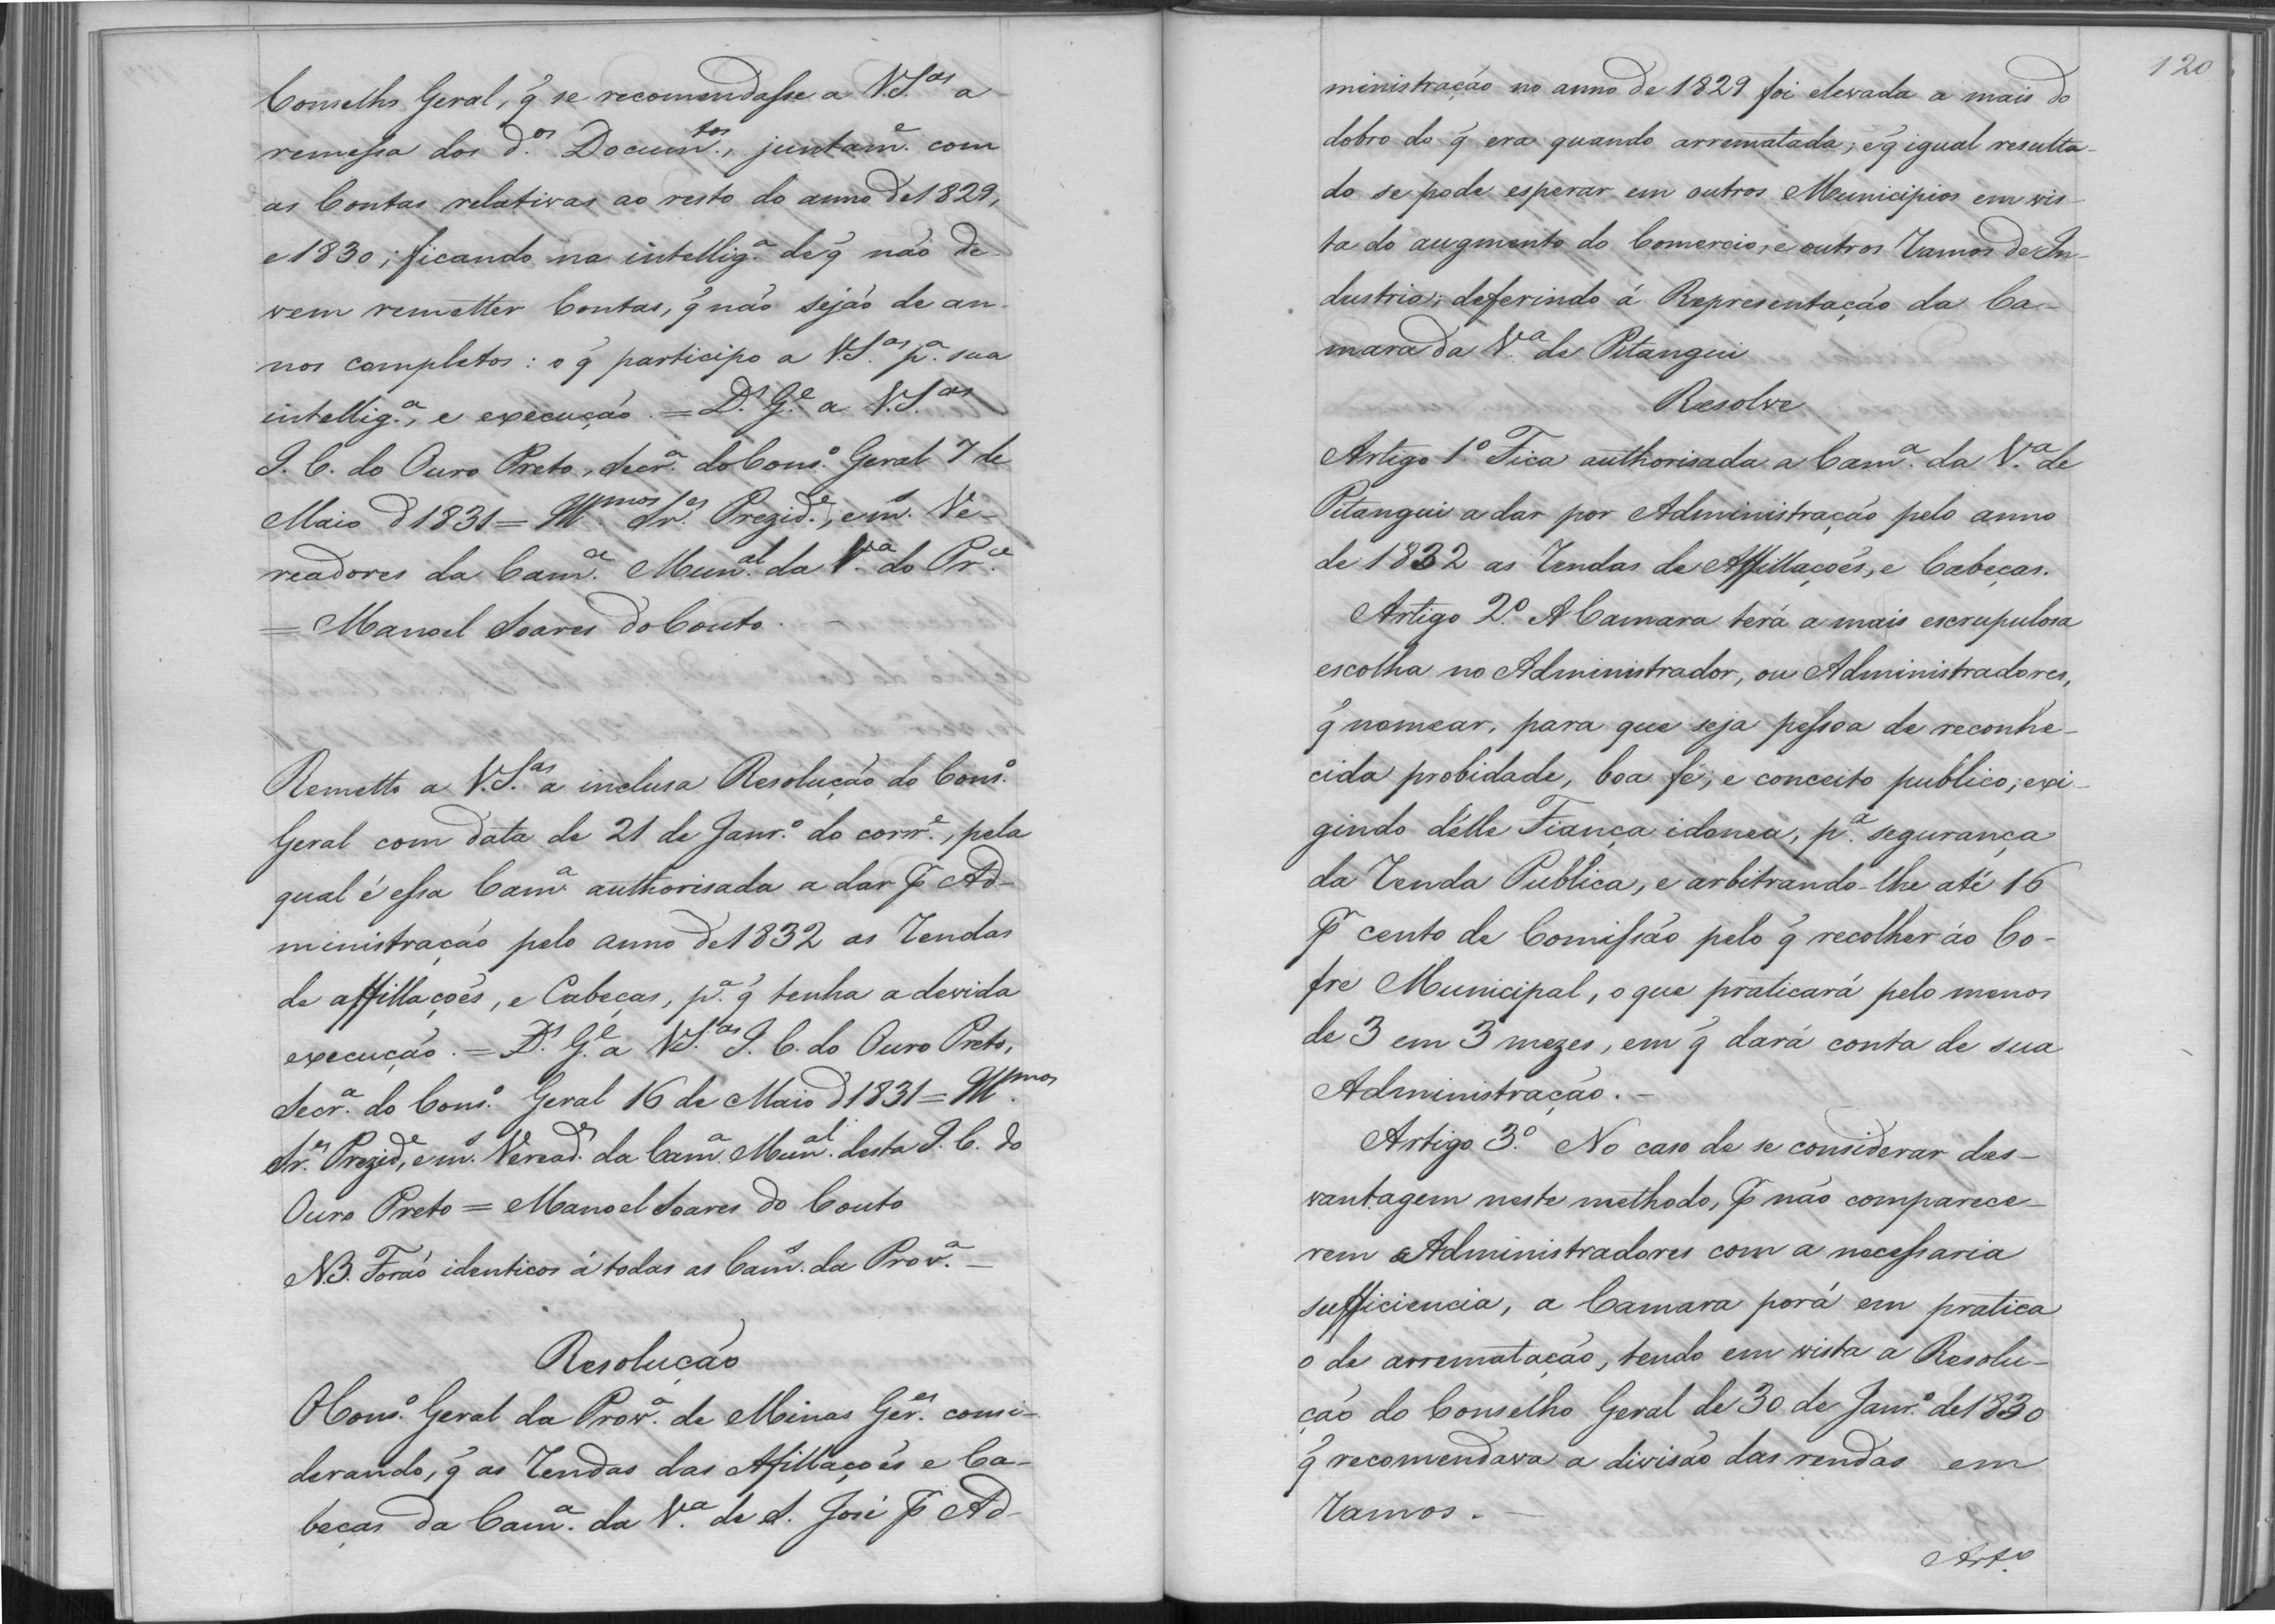 Conselho Geral, q̃ se recomendasse a V.S.as a
remessa dos d.os Docum.tos, juntam.e com
as Contas relativas ao resto do anno de 1829,
e 1830; ficando na intellig.a de q̃ não de-
vem remetter Contas, q̃ não sejão de an-
nos completos: o q̃ participo a V.S.as p.a sua
intellig.a, e execução. = D.s G.e a V.S.as
I. C. do Ouro Preto, Secr.a do Cons.o Geral 7 de
Maio d 1831 = Ill.mos Sr.es Prezid.e, e m.s Ve-
readores da Cam.a Mun.al da V.a do Pr.e
= Manoel Soares do Couto.
Remetto a V.S.as a inclusa Resolução do Cons.o
Geral com data de 21 de Janr.o do corr.e, pela
qual é essa Cam.a authorisada a dar p Ad-
ministração pelo anno de 1832 as Rendas
de affillações, e Cabeças, p.a q̃ tenha a devida
execução. = D.s G.e a V.S.as I. C. do Ouro Preto,
Secr.a do Cons.o Geral 16 de Maio d 1831 = Ill.mos
Sr.es Prezid.e, e m.s Veread.es da Cam.a Mun.al desta I. C. do
Ouro Preto = Manoel Soares do Couto
N.B. Forão identicos á todas as Cam.s da Prov.a —
Resolução
O Cons.o Geral da Prov.a de Minas Ger.es consi-
derando, q̃ as Rendas das Afillações e Ca-
beças da Cam.a da V.a de S. José p Ad-
120
ministração no anno de 1829 foi elevada a mais do
dobro do q̃ era quando arrematada; e q̃ igual resulta-
do se pode esperar em outros Municipios em vis-
ta do augmento do Comercio, e outros Ramos de In-
dustria; deferindo á Representação da Ca-
mara da V.a de Pitangui
Resolve
Artigo 1.o Fica authorisada a Cam.a da V.a de
Pitangui a dar por Administração pelo anno
de 1832 as Rendas de Affillações, e Cabeças.
Artigo 2.o A Camara terá a mais escrupulosa
escolha no Administrador, ou Administradores,
q̃ nomear, para que seja pessoa de reconhe-
cida probidade, boa fé, e conceito publico; exi-
gindo d'élle Fiança idonea, p.a segurança
da Renda Publica, e arbitrando-lhe até 16
p cento de Comissão pelo q̃ recolher áo Co-
fre Municipal, o que praticará pelo menos
de 3 em 3 mezes, em q̃ dará conta de sua
Administração. —
Artigo 3.o No caso de se considerar des-
vantagem neste methodo, p não comparece-
rem Administradores com a necessaria
sufficiencia, a Camara porá em pratica
o de arrematação, tendo em vista a Resolu-
ção do Conselho Geral de 30 de Janr.o de 1830
q̃ recomendava a divisão das rendas em
Ramos. —
Art.o